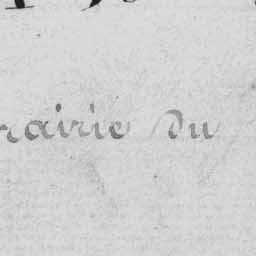 rairie du